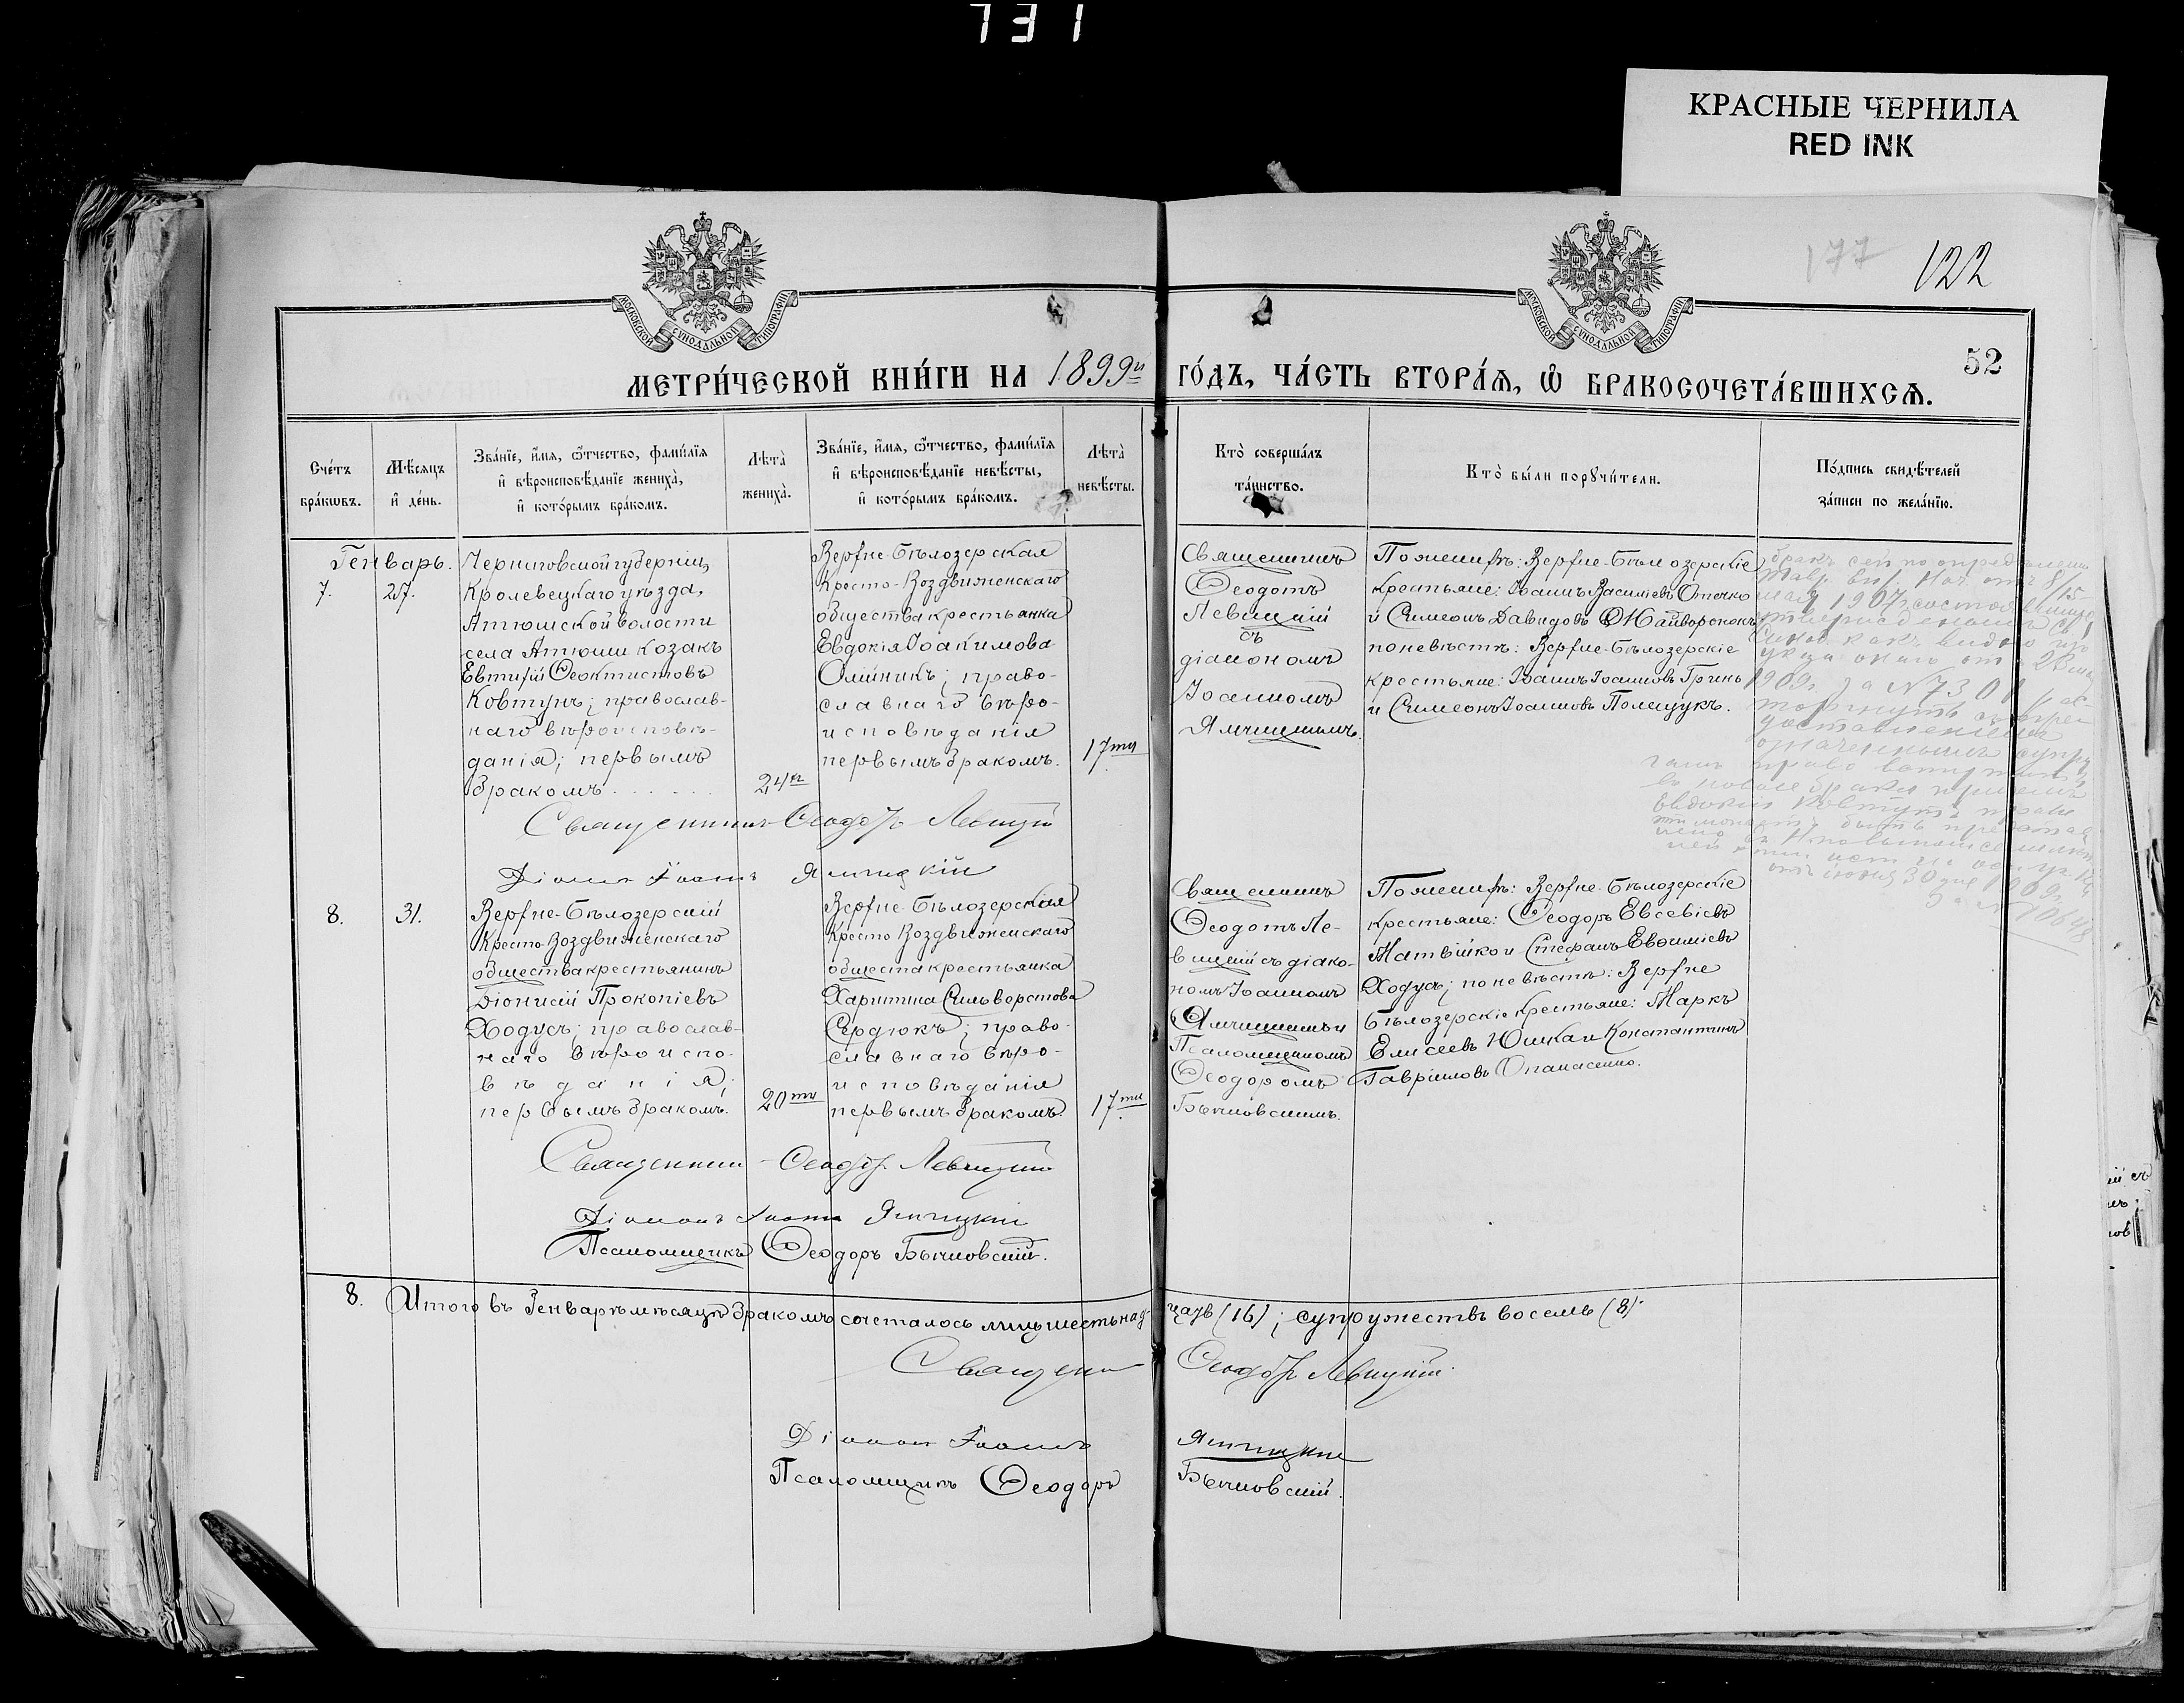 731
КРАСНЫЕ ЧЕРНИЛА
RED INK
177
122
МОСКОВСКОЙ СѴНОДАЛЬНОЙ ТИПОГРАФІИ
МОСКОВСКОЙ СѴНОДАЛЬНОЙ ТИПОГРАФІИ
52
МЕТРИ́ЧЕСКОЙ КНИ́ГИ НА 1899й ГО́ДЪ, ЧА́СТЬ ВТОРА́Я, Ѽ БРАКОСОЧЕТА́ВШИХСѦ.
Сче́тъ
бра́кѡвъ.
Мѣ́сѧцъ
и҆ де́нь.
Зва́нїе, и҆́мѧ, ѻ҆́тчество, фами́лїѧ
и҆ вѣроисповѣ́данїе жениха̀,
и҆ кото́рымъ бра́комъ.
Лѣта̀
жениха̀.
Зва́нїе, и҆́мѧ, ѻ҆́тчество, фами́лїѧ
и҆ вѣроисповѣ́данїе невѣ́сты,
и҆ кото́рымъ бра́комъ.
Лѣта̀
невѣ́сты.
Кто̀ соверша́лъ
та́инство.
Кто̀ бы́ли порꙋчи́тели.
По́дпись свидѣ́телей
за́писи по жела́нїю.
Генварь.
7.
27.
Черниговской губерніи,
Кролевецкаго уѣзда,
Атюшской волости
села Атюши козакъ
Евтихій Ѳеоктистовъ
Ковтунъ; православ-
наго вѣроисповѣ-
данія; первымъ
бракомъ . . . . . .
24хъ
Верхне-Бѣлозерская
Кресто-Воздвиженскаго
общества крестьянка
Евдокія Іоакимова
Олійникъ; право-
славнаго вѣро-
исповѣданія
первымъ бракомъ.
17ти
Священникъ
Ѳеодотъ
Левицкій
съ
діакономъ
Іоанномъ
Ямчицкимъ.
По женихѣ: Верхне-Бѣлозерскіе
крестьяне: Іоаннъ Василіевъ
и Симеонъ Давидовъ
по невѣстѣ: Верхне-Бѣлозерскіе
крестьяне: Іоаннъ Іоанновъ Гринь
и Симеонъ Іоанновъ Полищукъ.
1907
1909 г. за № 7301
Священникъ Ѳеодотъ Левицкій
Діаконъ Іоаннъ Ямчицкій
8.
31.
Верхне-Бѣлозерскій
Кресто-Воздвиженскаго
общества крестьянинъ
Діонисій Прокопіевъ
Ходусъ; православ-
наго вѣроиспо-
вѣданія;
первымъ бракомъ.
20ти
Верхне-Бѣлозерская
Кресто Воздвиженскаго
общеста крестьянка
Харитина Сильверстова
Сердюкъ; право-
славнаго вѣро-
исповѣданія
первымъ бракомъ.
17ти
Священникъ
Ѳеодотъ Ле-
вицкій съ діако-
номъ Іоанномъ
Ямчицкимъ и
Псаломщикомъ
Ѳеодоромъ
Бычковскимъ.
По женихѣ: Верхне-Бѣлозерскіе
крестьяне: Ѳеодоръ Евсевіевъ
Матвійко и Стефанъ Евѳиміевъ
Ходусъ; по невѣстѣ: Верхне
Бѣлозерскіе крестьяне: Маркъ
Елисеевъ Юшка и Константинъ
Гавріиловъ Опанасенко.
Священникъ Ѳеодотъ Левицкій
Діаконъ Іоаннъ Ямчицкій
Псаломщикъ Ѳеодоръ Бычковскій.
8. Итого въ Генварѣ мѣсяцѣ бракомъ сочеталось лицъ шестьнад-цать (16); супружествъ восемь (8).
Священ Ѳеодотъ Левицкій
Діаконъ Іоаннъ Ямчицкій
Псаломщикъ Ѳеодоръ Бычковскій.